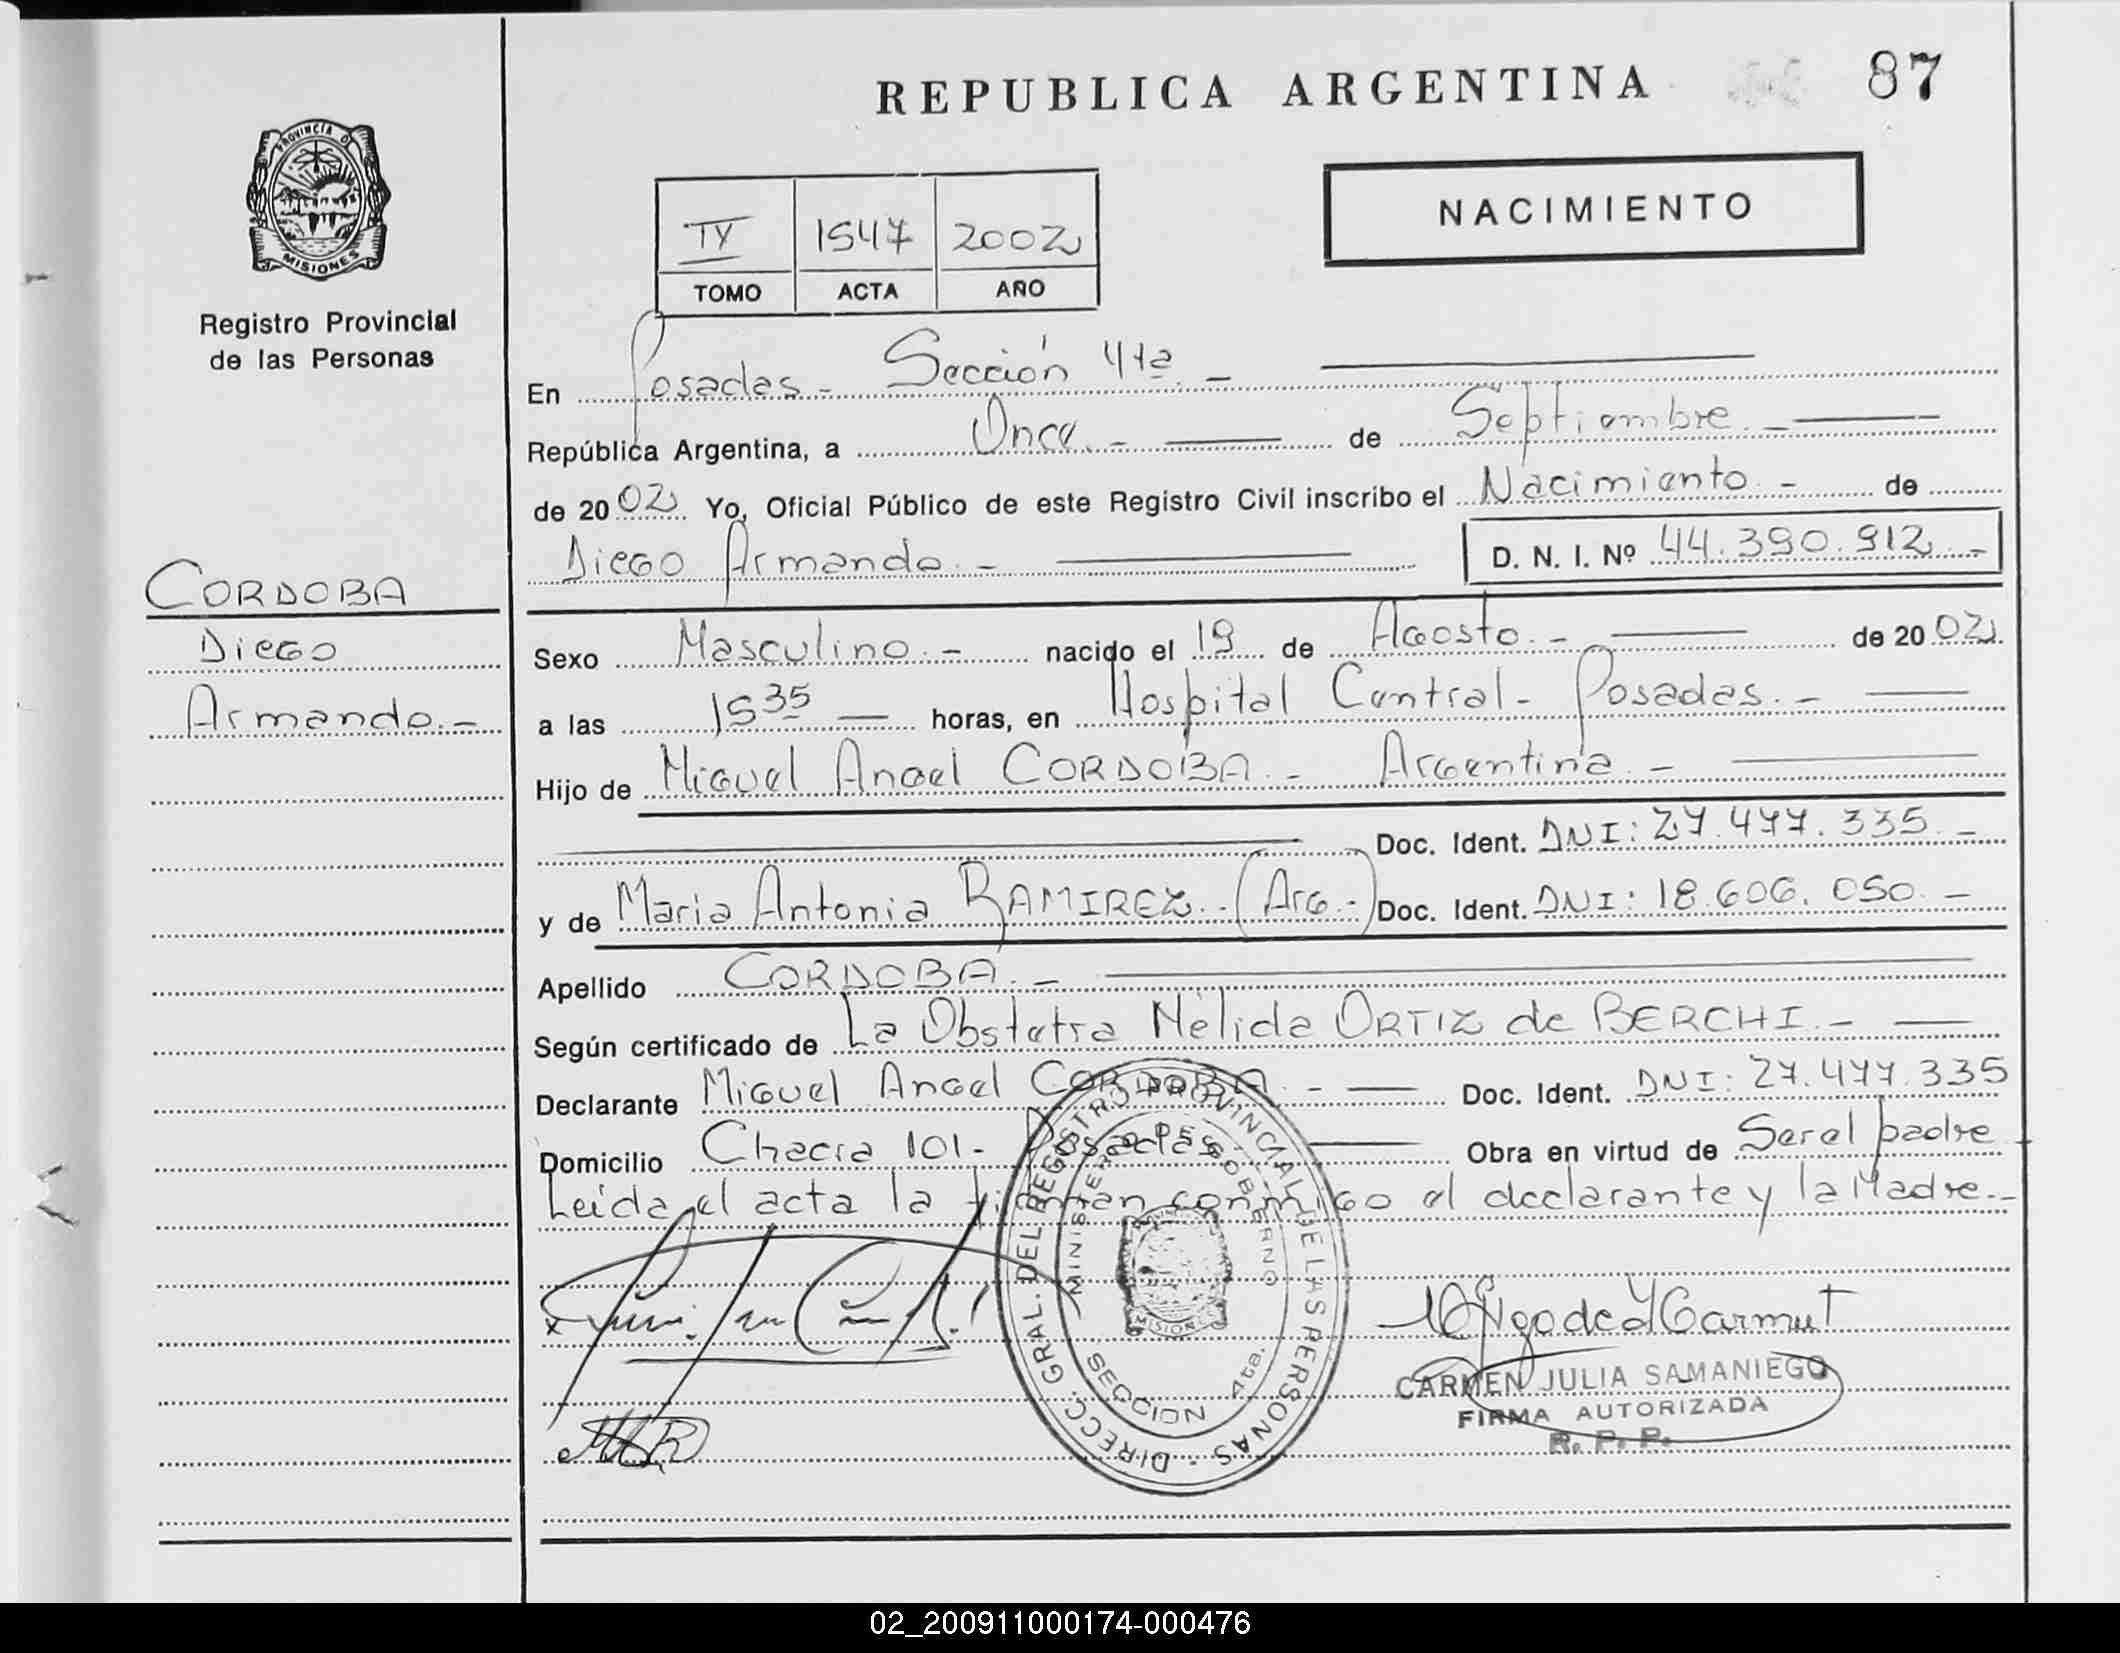 REPUBLICA ARGENTINA 87
PROVINCIA D
MISIONES
Registro Provincial
de las Personas
NACIMIENTO
IV 1547 2002
TOMO ACTA AÑO
En Posadas - Sección 4ta. -
República Argentina, a Once. - de Septiembre. -
de 2002 Yo, Oficial Público de este Registro Civil inscribo el Nacimiento - de
Diego Armando. - D. N. I. Nº 44.390.912. -
CORDOBA
Diego
Armando. -
Sexo Masculino. - nacido el 19 de Agosto. - de 2002.
a las 15 35 — horas, en Hospital Central - Posadas. -
Hijo de Miguel Angel CORDOBA. - Argentina. -
Doc. Ident. DNI: 27.477.335. -
y de Maria Antonia RAMIREZ. - (Arg. -) Doc. Ident. DNI: 18.606.050. -
Apellido CORDOBA. -
Según certificado de La Obstetra Nélida ORTIZ de BERCHI. -
Declarante Miguel Angel CORDOBA. - Doc. Ident. DNI: 27.477.335
Domicilio Chacra 101 - Posadas Obra en virtud de Ser el padre
Leida el acta la firman conmigo el declarante y la Madre. -
DIRECC. GRAL. DEL REGISTRO PROVINCIAL DE LAS PERSONAS
MINISTERIO DE GOBIERNO
MISIONES
SECCION 4ta.
CARMEN JULIA SAMANIEGO
FIRMA AUTORIZADA
R. P. P.
02_200911000174-000476